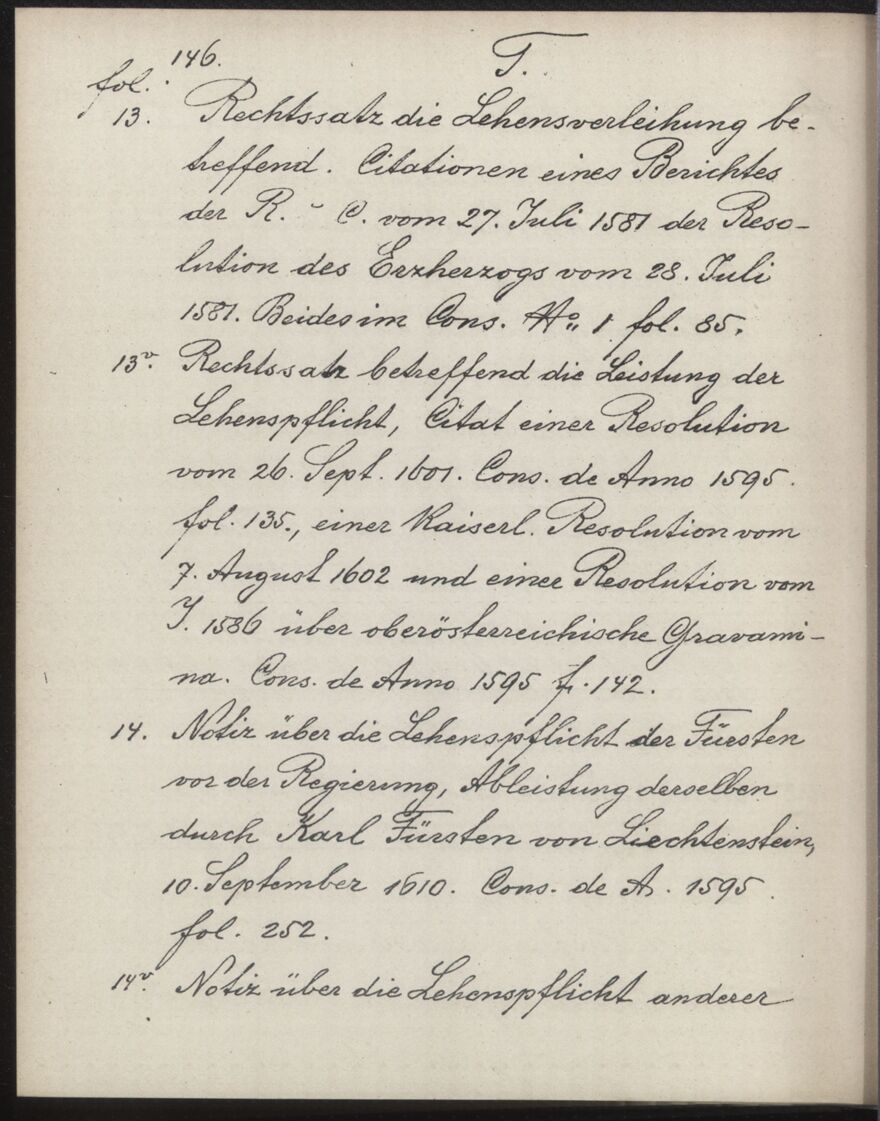 146. T.
fol.
13. Rechtssatz die Lehensverleihung be-
treffend. Citationen eines Berichtes
der R. - C. vom 27. Juli 1581 der Reso-
lution des Erzherzogs vom 28. Juli
1581. Beides im Cons. No. 1 fol. 85.
13v. Rechtssatz betreffend die Leistung der
Lehenspflicht, Citat einer Resolution
vom 26. Sept. 1601. Cons. de Anno 1595.
fol. 135., einer Kaiserl. Resolution vom
7. August 1602 und einer Resolution vom
J. 1586 über oberösterreichische Gravami-
na. Cons. de Anno 1595 f. 142.
14. Notiz über die Lehenspflicht der Fürsten
vor der Regierung, Ableistung derselben
durch Karl Fürsten von Liechtenstein,
10. September 1610. Cons. de A. 1595.
fol. 252.
14v. Notiz über die Lehenspflicht anderer